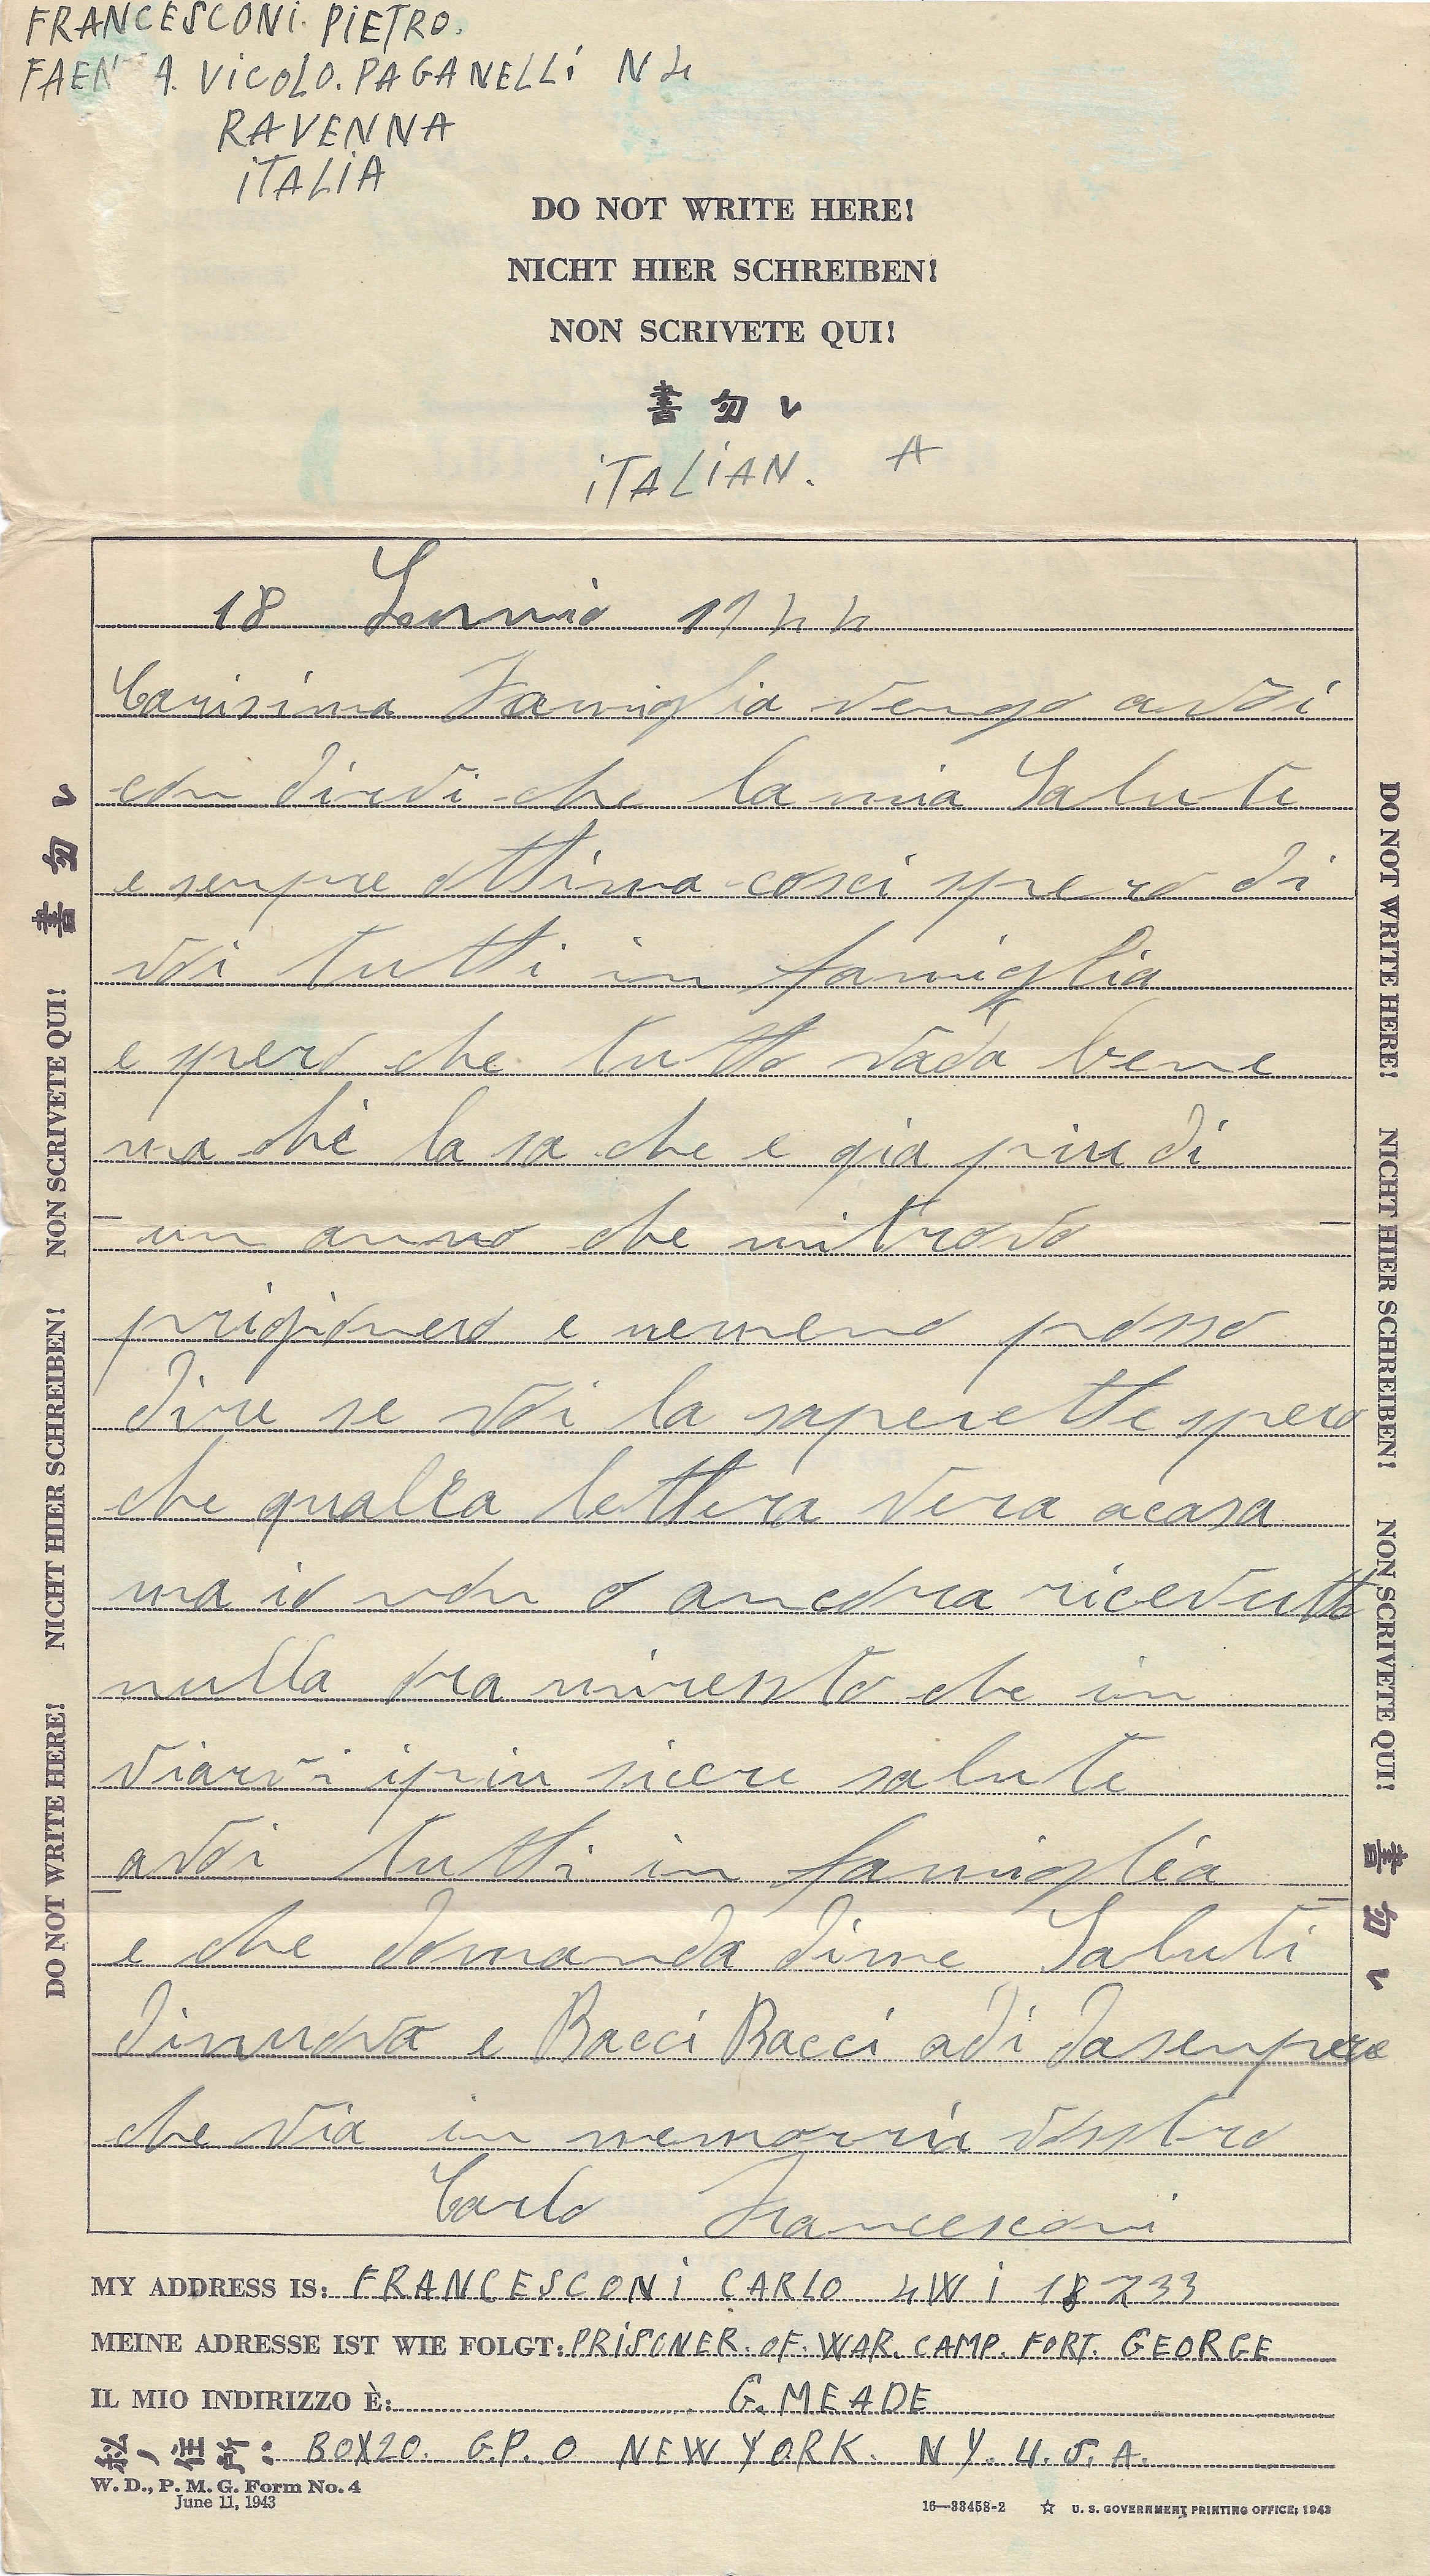 FRANCESCONI. PIETRO.
FAEN A. VICOLO. PAGANELLI N 4
RAVENNA
ITALIA
DO NOT WRITE HERE!
NICHT HIER SCHREIBEN!
NON SCRIVETE QUI!
書勿レ
ITALIAN. A
18 1944
Carisima Famiglia vengo a voi
con dirvi che la mia Salute
e senpre ottima cosci spero di
voi tutti in famiglia
e spero che tutto vada bene
ma chi la sa che e gia piu di
un anno che mi trovo
prigionero e nemeno posso
dire se voi la saperette spero
che qualca lettera vera acasa
ma io non o ancora ricevutto
nulla ora miresto che in
viarvi ipiu sicere salute
avoi tutti in famiglia
e che domanda dime Saluti
dinuovo e Bacci Bacci adi dasenpere
che via in memorria vosstro
Carlo Francesconi
DO NOT WRITE HERE! NICHT HIER SCHREIBEN! NON SCRIVETE QUI! 書勿レ
DO NOT WRITE HERE! NICHT HIER SCHREIBEN! NON SCRIVETE QUI! 書勿レ
MY ADDRESS IS: FRANCESCONI CARLO 4W I 18733
MEINE ADRESSE IST WIE FOLGT: PRISONER. OF. WAR. CAMP. FORT. GEORGE
IL MIO INDIRIZZO È: G. MEADE
私ノ住所: BOX20. G.P.O NEW YORK. N Y. U.S.A.
W. D., P. M. G. Form No. 4
June 11, 1943
16—33458-2 ☆ U. S. GOVERNMENT PRINTING OFFICE: 1943